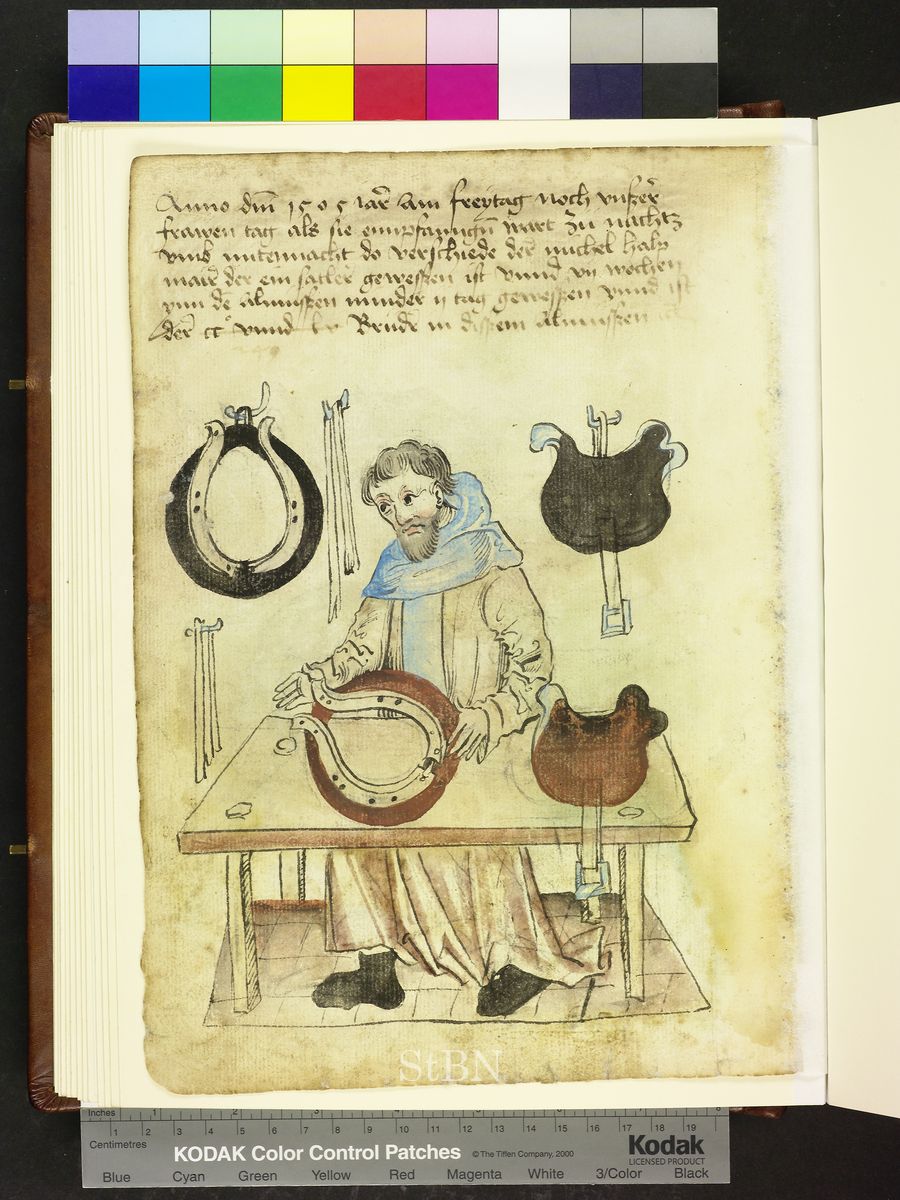 Anno dm̄ 1505 Jar̄ Am freytag noch vnszer̄
frawen tag als sie empfanngn̄ wart zu nachtz
vmb mitternacht do verschiede der michel halp
mair der ein satler geweszen ist vnnd vij wochen
ynn de almuszen minder ij tag geweszen vnnd ist
der cc vnnd lv Brudr̄ in diszem almuszen
StBN
Inches 1 2 3 4 5 6 7 8
Centimetres 1 2 3 4 5 6 7 8 9 10 11 12 13 14 15 16 17 18 19
KODAK Color Control Patches © The Tiffen Company, 2000 Kodak
LICENSED PRODUCT
Blue Cyan Green Yellow Red Magenta White 3/Color Black